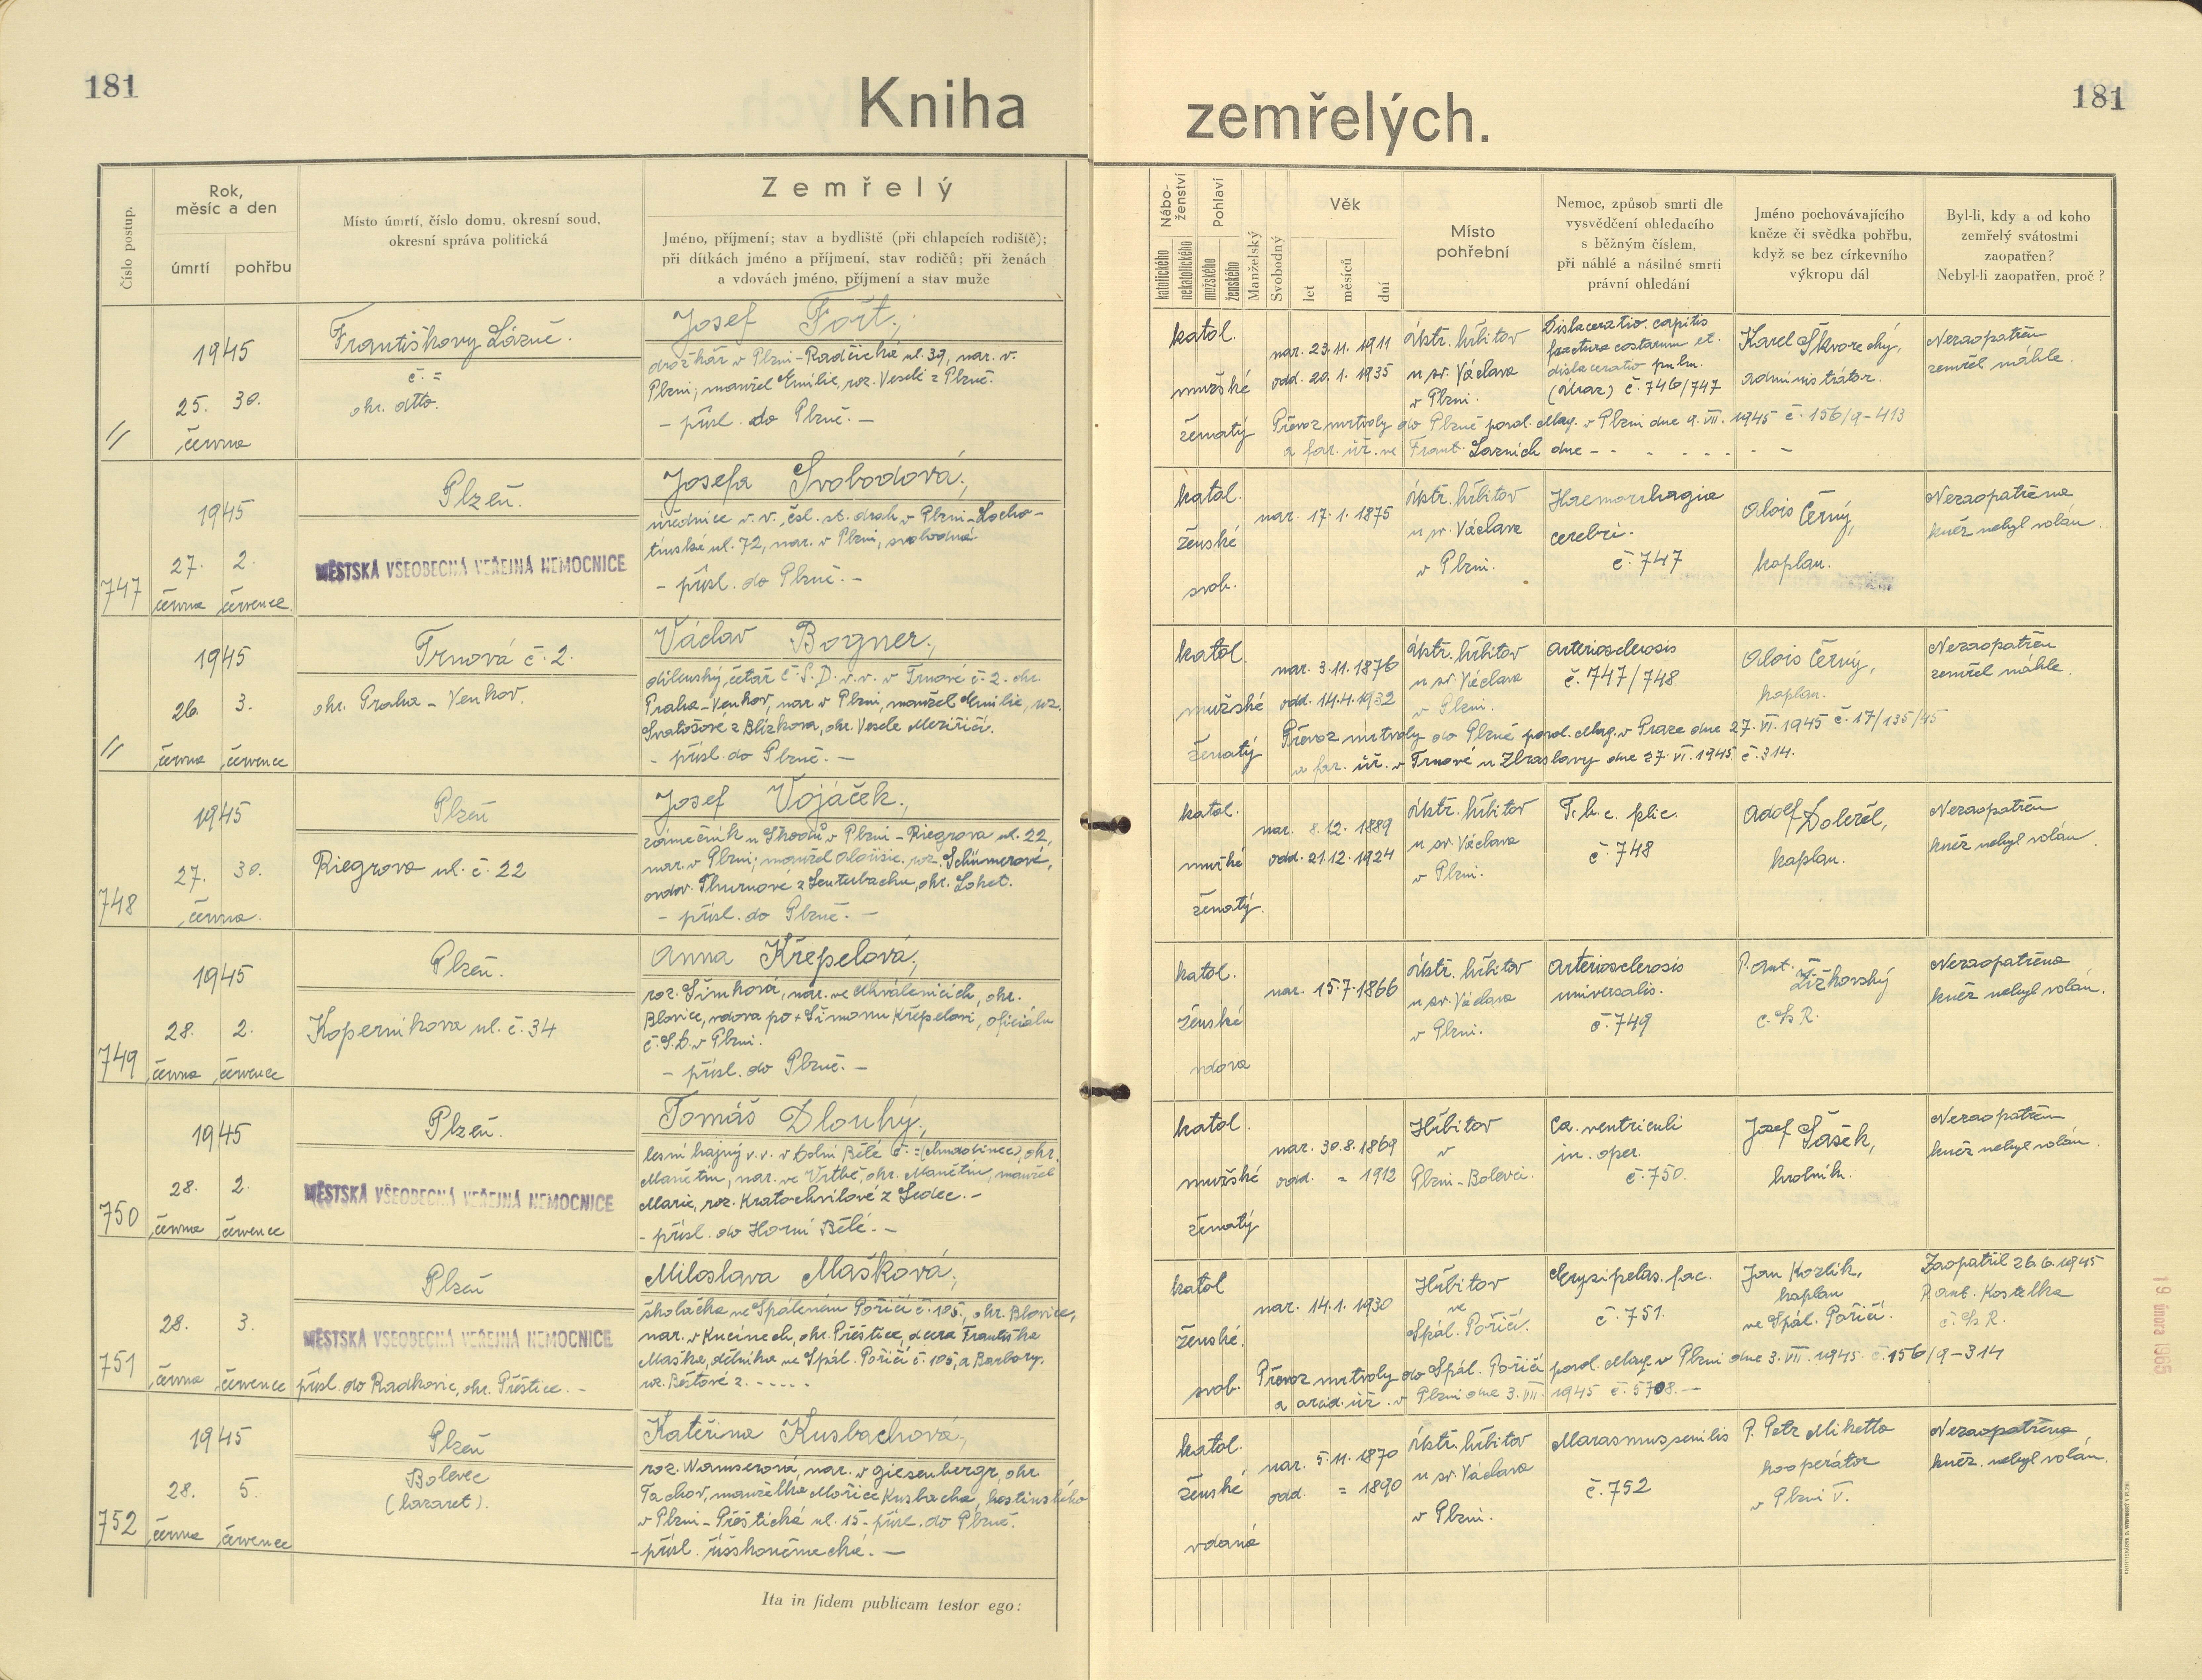 181
Kniha
zemřelých.
181
Číslo postup.
Rok,
měsíc a den
úmrtí
pohřbu
Místo úmrtí, číslo domu, okresní soud,
okresní správa politická
Zemřelý
Jméno, příjmení; stav a bydliště (při chlapcích rodiště);
při dítkách jméno a příjmení, stav rodičů; při ženách
a vdovách jméno, příjmení a stav muže
Nábo-
ženství
katolického
nekatolického
Pohlaví
mužského
ženského
Manželský
Svobodný
Věk
let
měsíců
dní
Místo
pohřební
Nemoc, způsob smrti dle
vysvědčení ohledacího
s běžným číslem,
při náhlé a násilné smrti
právní ohledání
Jméno pochovávajícího
kněze či svědka pohřbu,
když se bez církevního
výkropu dál
Byl-li, kdy a od koho
zemřelý svátostmi
zaopatřen?
Nebyl-li zaopatřen, proč?
//
1945
25. 30.
června
Františkovy Lázně.
č. =
okr. dtto.
Josef Fořt,
drožkář v Plzni-Radčická ul. 39, nar. v
Plzni; manžel Emilie, roz. Veselé z Plzně.
- přísl. do Plzně. -
katol.
mužské
ženatý
nar. 23.11.1911
odd. 20.1.1935
ústř. hřbitov
u sv. Václava
v Plzni.
Dislaceratio capitis
fractura costarum et.
dislaceratio pulm.
(úraz) č. 746/747
Karel Škvorecký,
administrátor.
Nezaopatřen
zemřel náhle.
Převoz mrtvoly do Plzně povol. Mag. v Plzni dne 9.VII.1945 č. 156/9-413
a far. úř. ve Frant. Lázních dne - - - - - - - -
747
1945
27. 2.
června července
Plzeň.
MĚSTSKÁ VŠEOBECNÁ VEŘEJNÁ NEMOCNICE
Josefa Svobodová,
úřednice v.v. čsl. st. drah v Plzni-Locho-
tínské ul. 72, nar. v Plzni, svobodná
- přísl. do Plzně. -
katol.
ženské
svob.
nar. 17.1.1875
ústř. hřbitov
u sv. Václava
v Plzni.
Haemorrhagia
cerebri.
č. 747
Alois Černý,
kaplan.
Nezaopatřena
kněz nebyl volán.
//
1945
26. 3.
června července
Trnová č. 2.
okr. Praha - Venkov.
Václav Bogner,
dílenský četař Č.S.D. v.v. v Trnové č. 2. okr.
Praha-Venkov, nar. v Plzni, manžel Emilie, roz.
Svatošové z Blízkova, okr. Velké Meziříčí.
- přísl. do Plzně. -
katol.
mužské
ženatý
nar. 3.11.1876
odd. 14.4.1932
ústř. hřbitov
u sv. Václava
v Plzni.
Arteriosclerosis
č. 747/748
Alois Černý,
kaplan.
Nezaopatřen
zemřel náhle.
Převoz mrtvoly do Plzně povol. Mag. v Praze dne 27.VI.1945 č. 17/135/45
a far. úř. v Trnové u Zbraslavy dne 27.VI.1945 č. 314.
748
1945
27. 30.
června.
Plzeň
Riegrova ul. č. 22
Josef Vojáček,
zámečník u Škodů v Plzni - Riegrova ul. 22,
nar. v Plzni; manžel Aloisie, roz. Schümerové,
ovdov. Thurnové z Leuterbachu, okr. Loket.
- přísl. do Plzně. -
katol.
mužské
ženatý.
nar. 8.12.1889
odd. 21.12.1924
ústř. hřbitov
u sv. Václava
v Plzni.
T.b.c. plic.
č. 748
Adolf Doležel,
kaplan.
Nezaopatřen
kněz nebyl volán.
749
1945
28. 2.
června července
Plzeň.
Koperníkova ul. č. 34
Anna Křepelová,
roz. Šimková, nar. ve Chválenicích, okr.
Blovice, vdova po + Šimonu Křepelovi, oficiálu
č.S.D. v Plzni.
- přísl. do Plzně. -
katol.
ženské
vdova
nar. 15.7.1866
ústř. hřbitov
u sv. Václava
v Plzni.
Arteriosclerosis
universalis.
č. 749
P. Ant. Žižkovský
C.Ss.R.
Nezaopatřena
kněz nebyl volán.
750
1945
28. 2.
června července
Plzeň.
MĚSTSKÁ VŠEOBECNÁ VEŘEJNÁ NEMOCNICE
Tomáš Dlouhý,
lesní hajný v.v. v Dolní Bělé č. = (chudobinec), okr.
Manětín, nar. ve Vrtbě, okr. Manětín, manžel
Marie, roz. Kratochvílové z Ledec. -
- přísl. do Horní Bělé. -
katol.
mužské
ženatý
nar. 30.8.1869
odd. = 1912
Hřbitov
v
Plzni-Bolevci.
Ca. ventriculi
in. oper.
č. 750.
Josef Šašek,
hrobník.
Nezaopatřen
kněz nebyl volán.
751
28. 3.
června července
Plzeň
MĚSTSKÁ VŠEOBECNÁ VEŘEJNÁ NEMOCNICE
přísl. do Radkovic, okr. Přeštice. -
Miloslava Mašková,
školačka ve Spáleném Poříčí č. 105, okr. Blovice,
nar. v Kucínech, okr. Přeštice, dcera Františka
Maška, dělníka ve Spál. Poříčí č. 105, a Barbory,
roz. Běštové z - - - - -
katol
ženské.
svob.
nar. 14.1.1930
Hřbitov
ve
Spál. Poříčí.
Erysipelas. fac.
č. 751.
Jan Kozlík,
kaplan
ve Spál. Poříčí.
Zaopatřil 26.6.1945
P. Ant. Kostelka
C.Ss.R.
Převoz mrtvoly do Spál. Poříčí povol. Mag. v Plzni dne 3.VII.1945. č. 156/9-314
a arcid. úř. v Plzni dne 3.VII.1945 č. 5708. -
752
1945
28. 5.
června července
Plzeň
Bolevec
(lazaret).
Kateřina Kusbachová,
roz. Wamserová, nar. v Giesenbergr, okr.
Tachov, manželka Mořice Kusbacha, hostinského
v Plzni - Přeštická ul. 15 - přísl. do Plzně.
- přísl. říšskoněmecká. -
katol.
ženské
vdaná
nar. 5.11.1870
odd. = 1890
ústř. hřbitov
u sv. Václava
v Plzni.
Marasmus senilis
č. 752
P. Petr Miketta
kooperátor
v Plzni V.
Nezaopatřena
kněz. nebyl volán.
Ita in fidem publicam testor ego:
19 února 1965